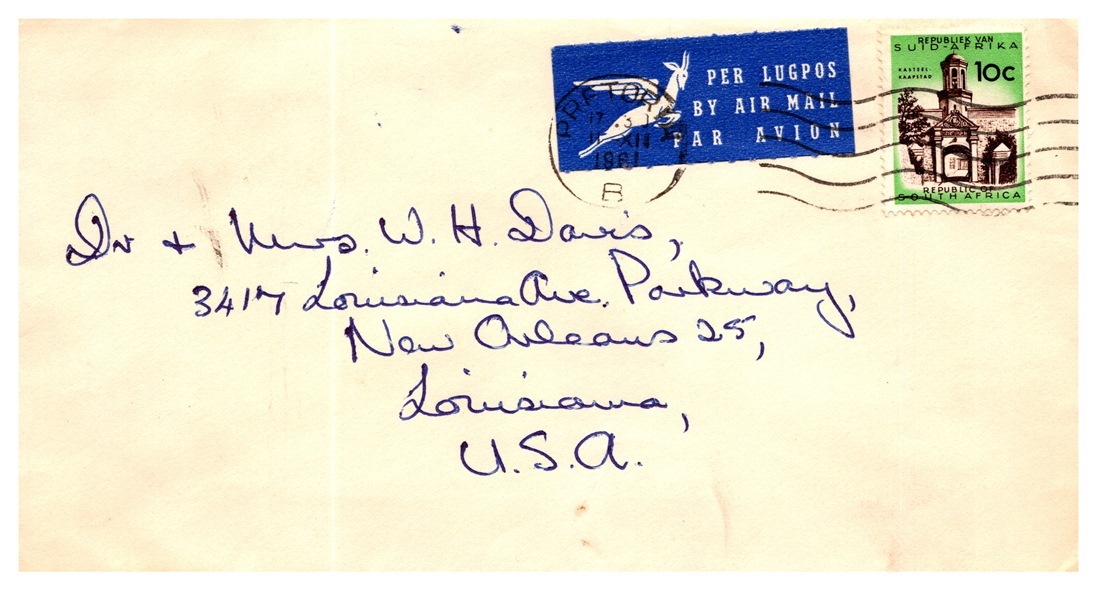 PER LUGPOS
BY AIR MAIL
PAR AVION
REPUBLIEK VAN
SUID-AFRIKA
KASTEEL-
KAAPSTAD
10c
REPUBLIC OF
SOUTH AFRICA
PRETORIA
XII
1961
B
Dr + Mrs. W. H. Davis,
3417 Louisiana Ave. Parkway,
New Orleans 25,
Louisiana,
U.S.A.